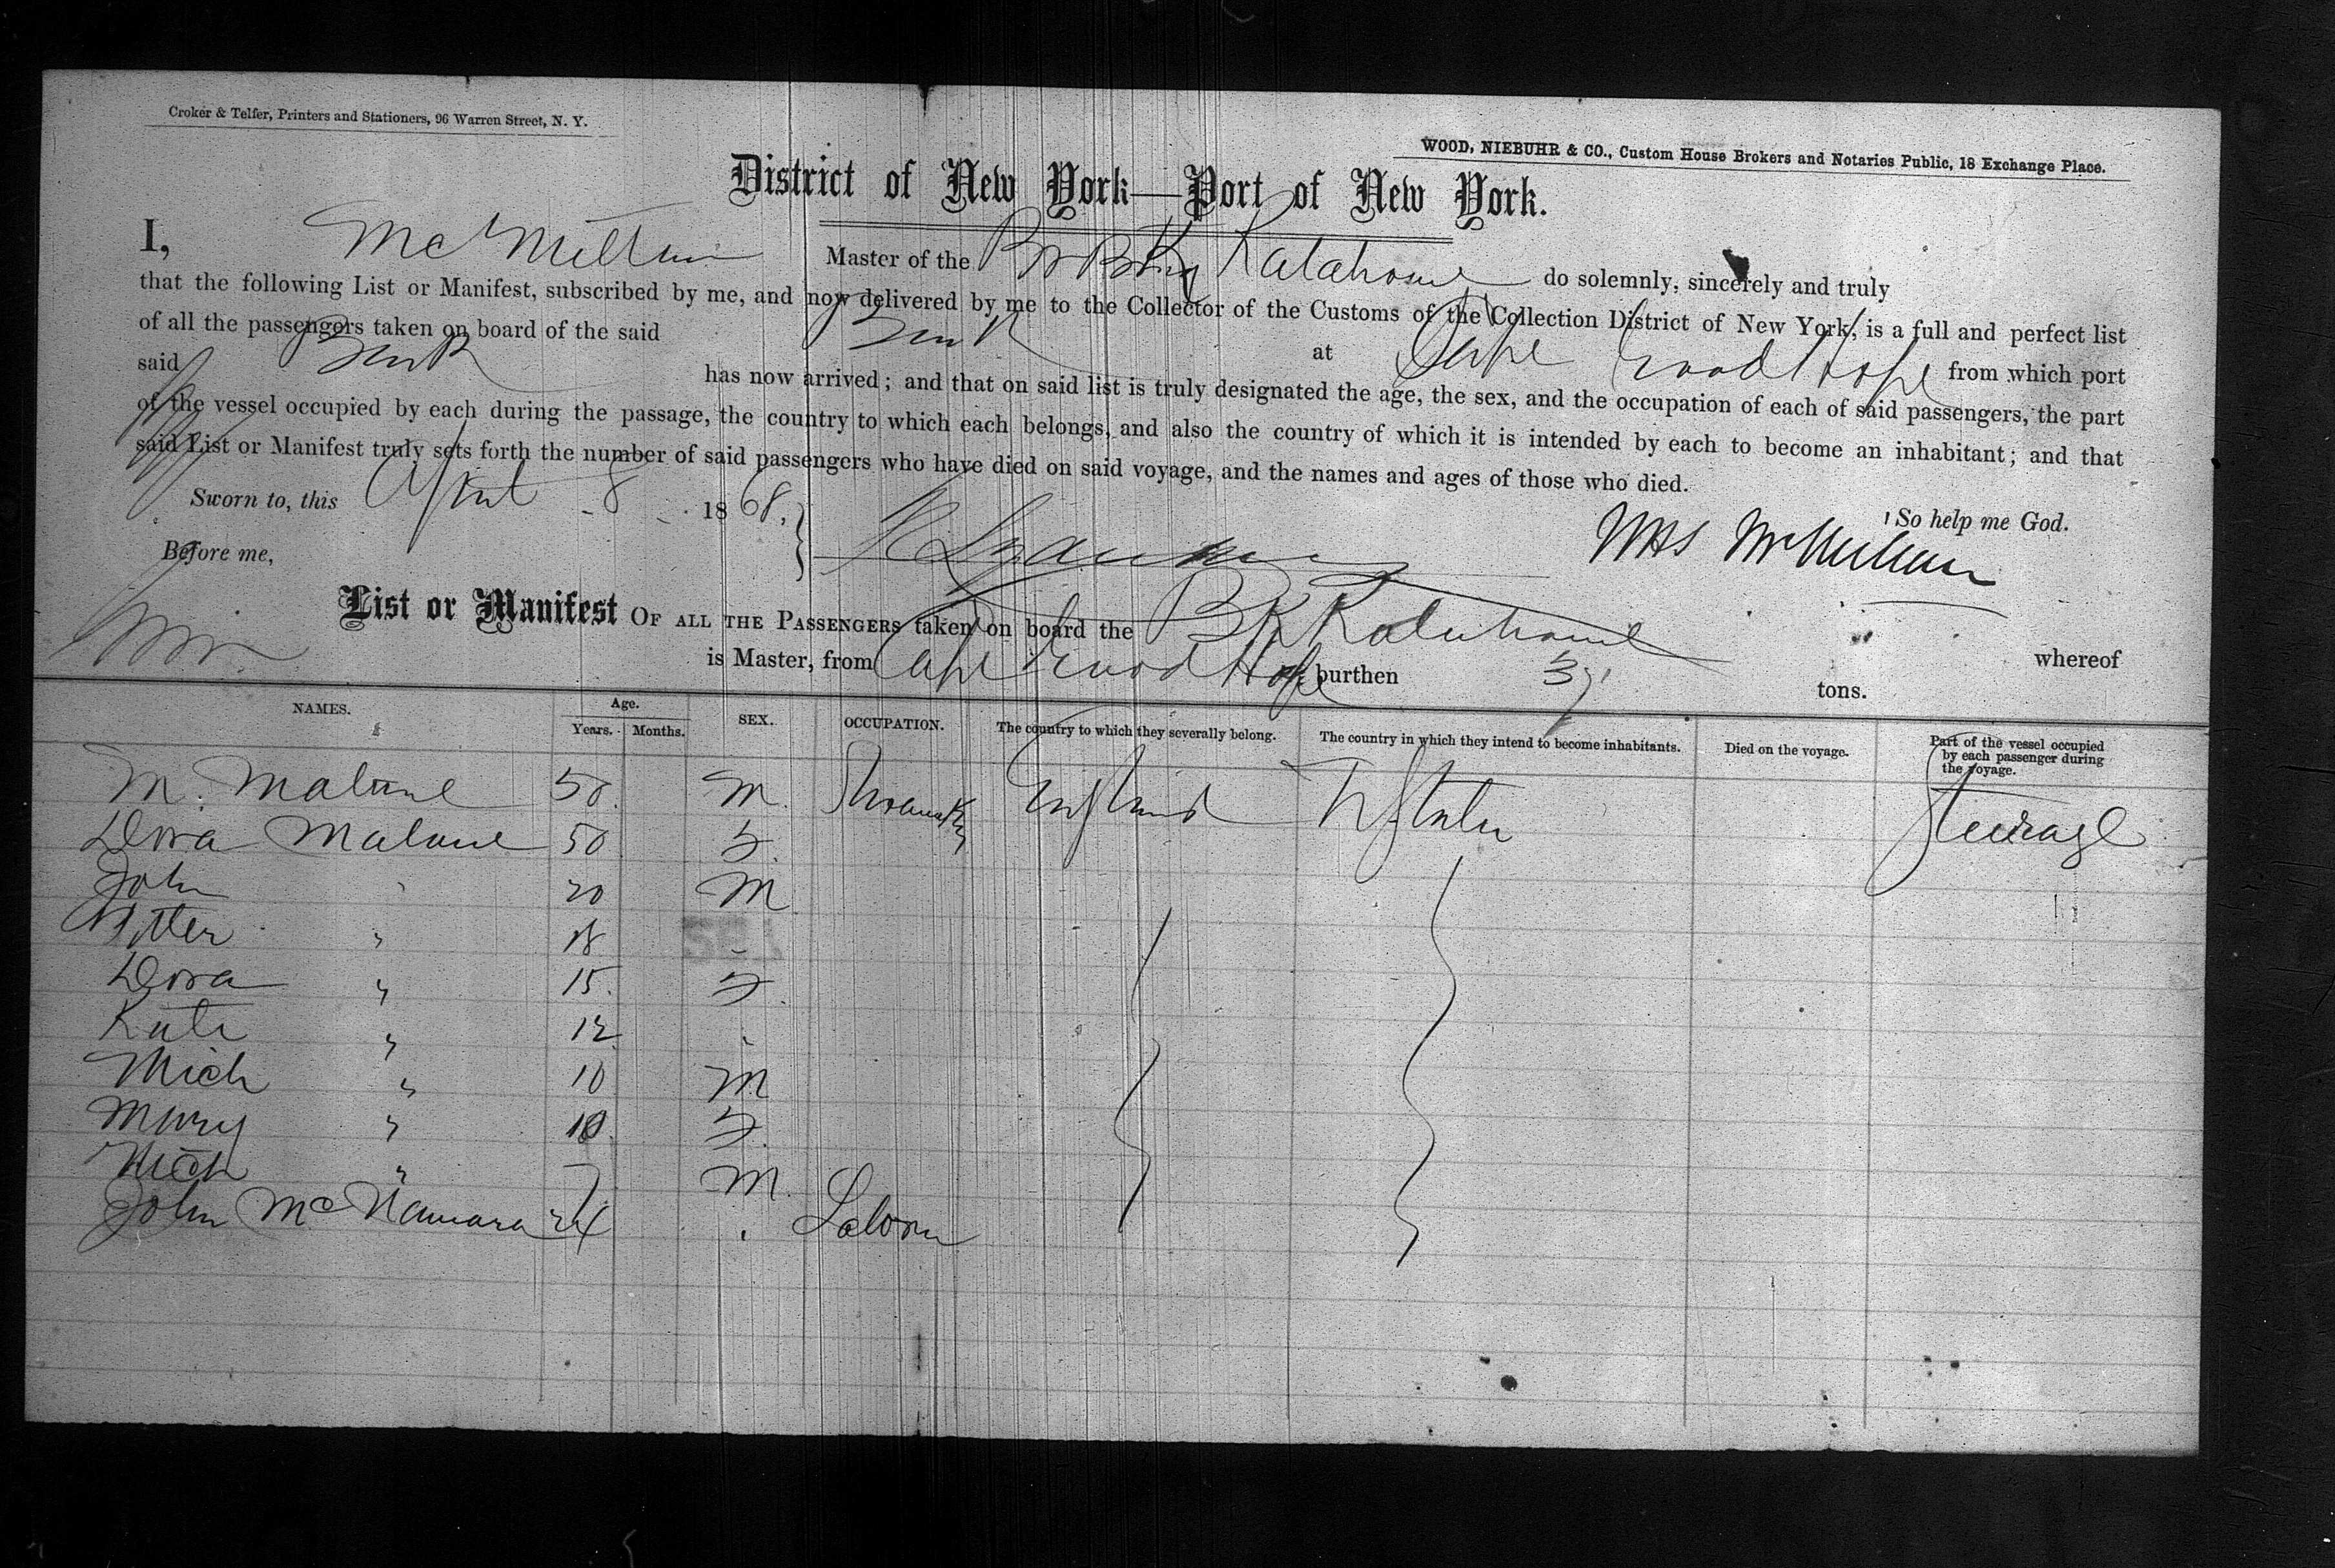 Croker & Telfer, Printers and Stationers, 96 Warren Street, N. Y.
WOOD, NIEBUHR & CO., Custom House Brokers and Notaries Public, 18 Exchange Place.
District of New York—Port of New York.
I, McMillan Master of the Br Katahome do solemnly, sincerely and truly
that the following List or Manifest, subscribed by me, and now delivered by me to the Collector of the Customs of the Collection District of New York, is a full and perfect list
of all the passengers taken on board of the said Bark at Cape Good Hope from which port
said Bark has now arrived; and that on said list is truly designated the age, the sex, and the occupation of each of said passengers, the part
of the vessel occupied by each during the passage, the country to which each belongs, and also the country of which it is intended by each to become an inhabitant; and that
said List or Manifest truly sets forth the number of said passengers who have died on said voyage, and the names and ages of those who died.
Sworn to, this April 8 1868, So help me God.
Before me, McMillan
List or Manifest OF ALL THE PASSENGERS taken on board the Bk Katahome whereof
is Master, from Cape Good Hope burthen tons.
NAMES. Age. Years. Months. SEX. OCCUPATION. The country to which they severally belong. The country in which they intend to become inhabitants. Died on the voyage. Part of the vessel occupied by each passenger during the voyage.
M. Malone 50 M. England U States Steerage
Dora Malone 50 F.
John 20 M
Peter " 18
Dora " 15 F.
Kate " 12
Mich " 10 M
Mary " 10 F.
Mich " 7 M.
John McNamara 24 Labour